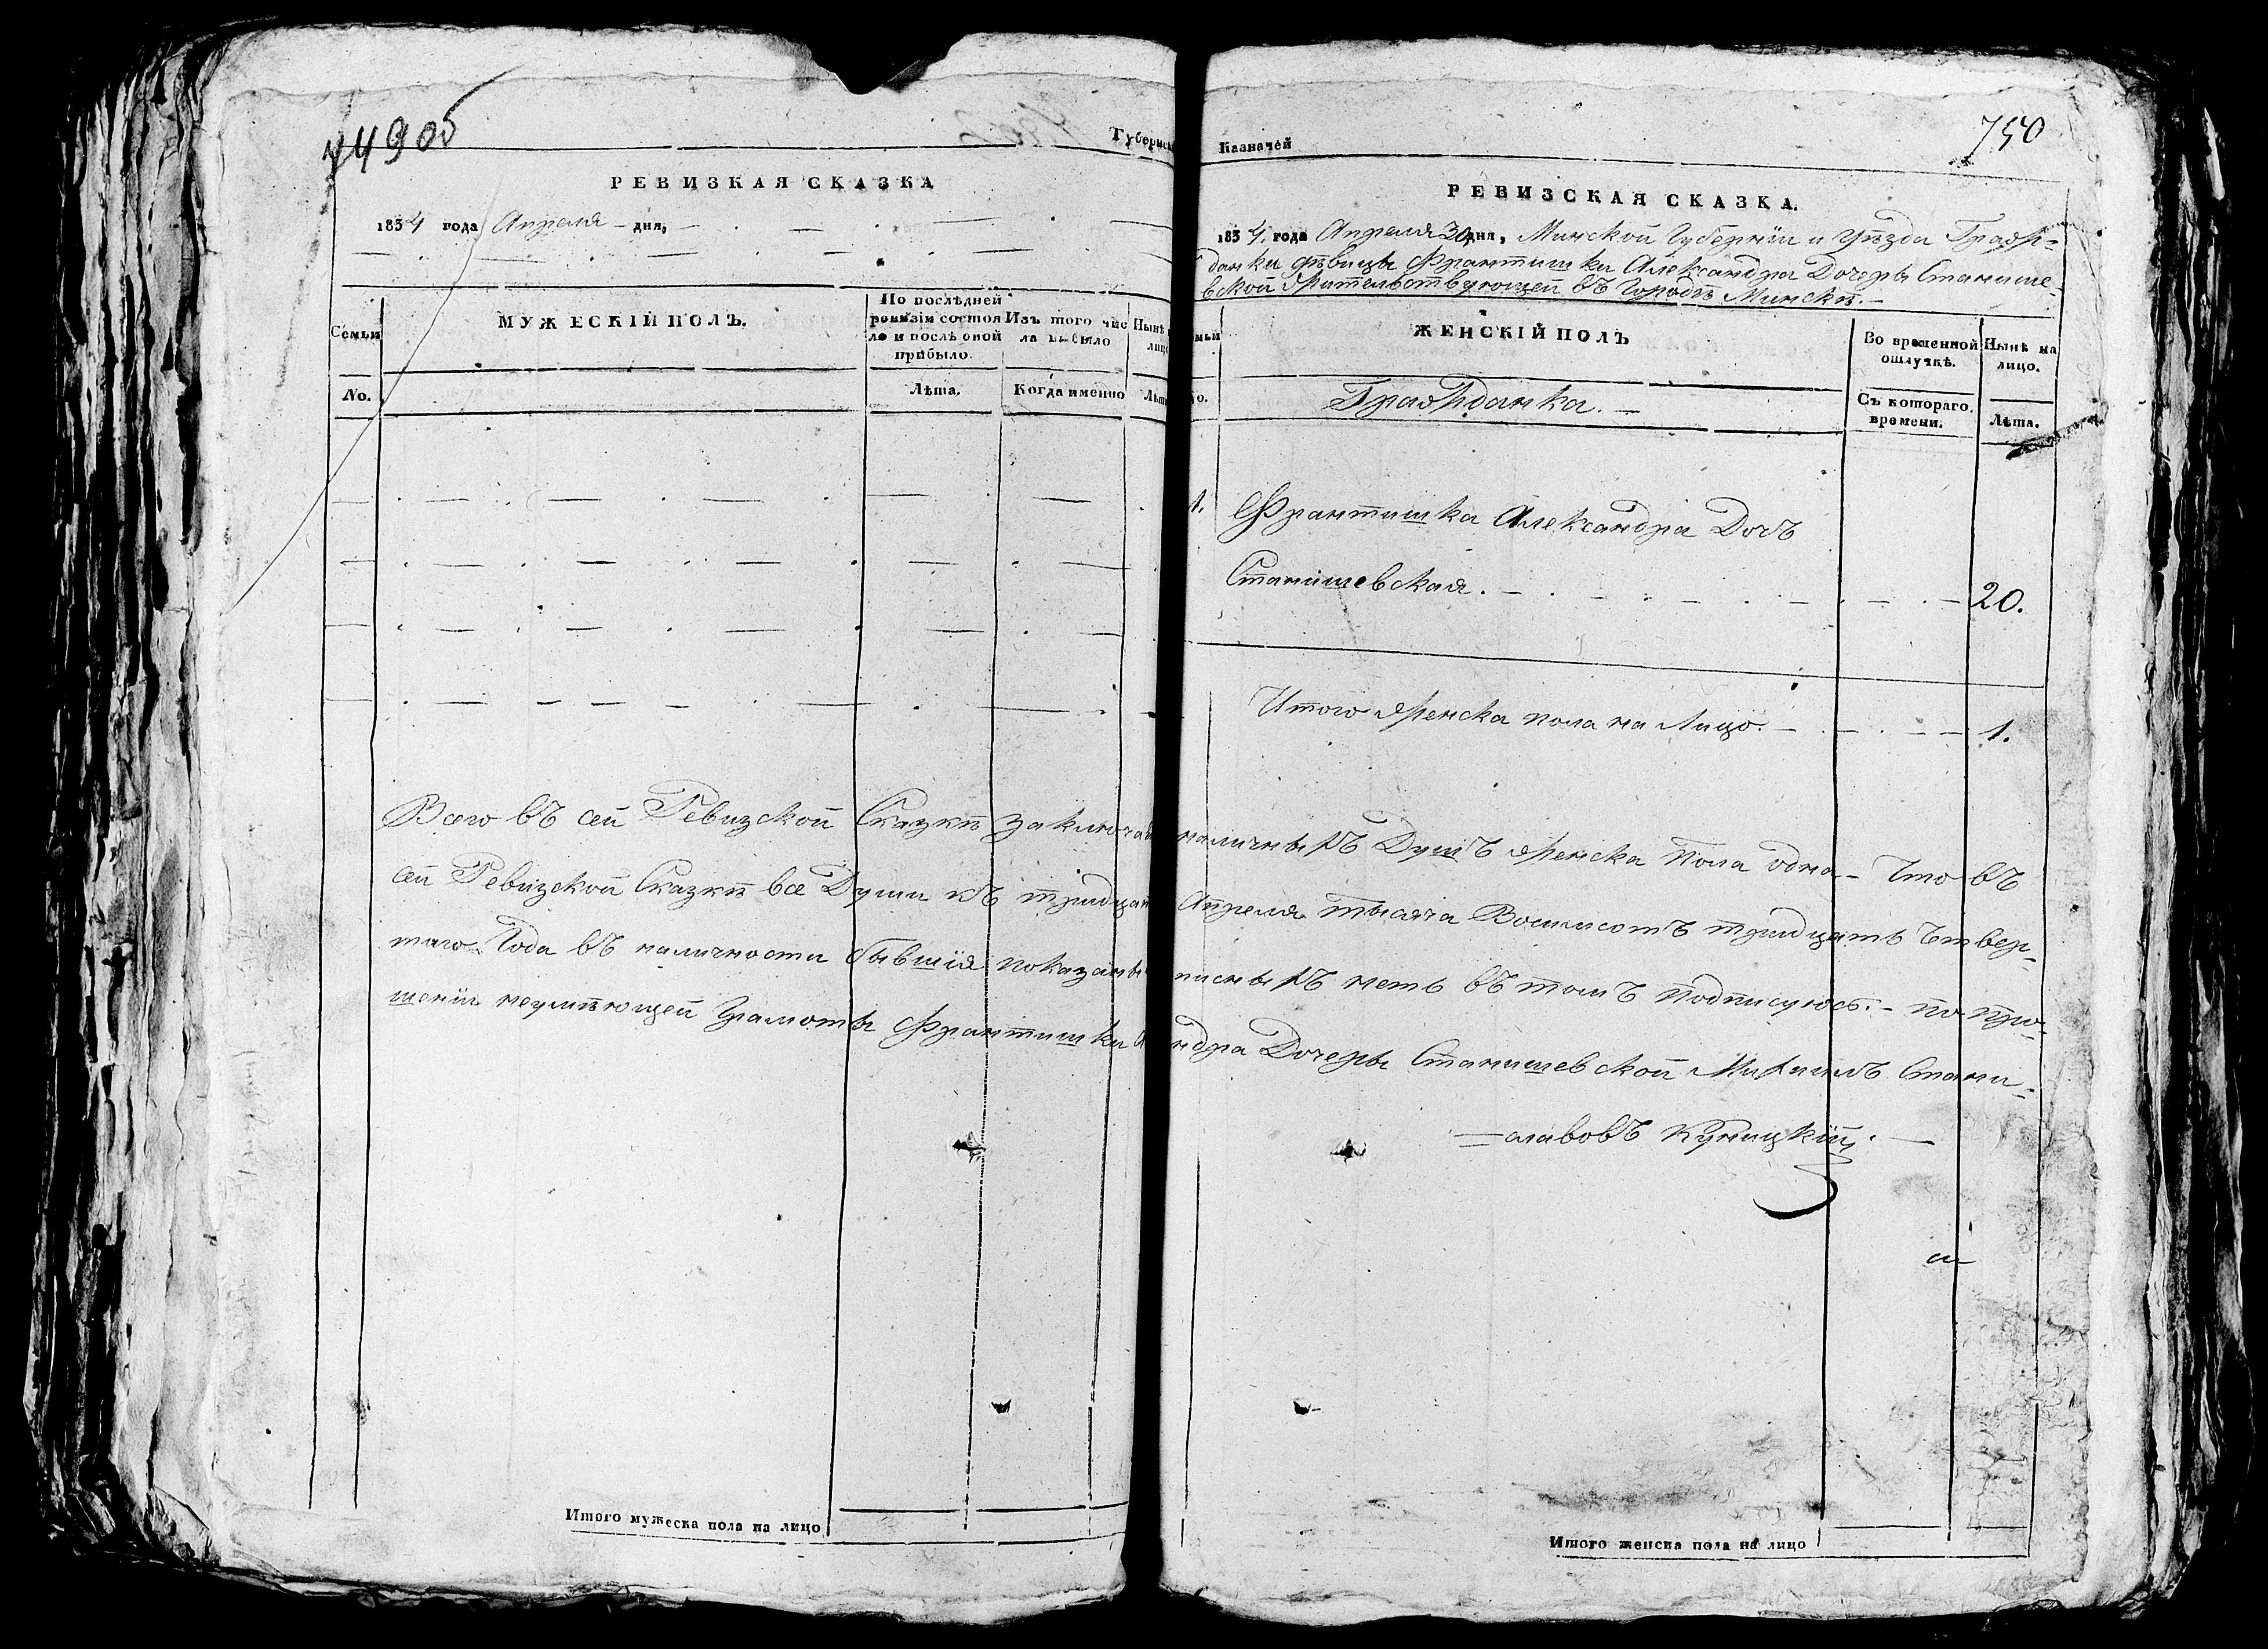 749об
Губернск
РЕВИЗКАЯ СКАЗКА
1834 года Апреля – дня,
Семьи
МУЖЕСКІЙ ПОЛЪ.
По послѣдней ревизіи состоя
ло и послѣ оной прибыло.
Изъ того чис
ла выбыло
Нынѣ
лицо
No.
Лѣта.
Когда именно
Лѣта
Всего въ сей Ревизской Сказкѣ заключае
сей Ревизской Сказкѣ все Души къ тридцат
таго Года въ наличности бывшія показаны
шенію неумѣющей Грамоты Франтишки
Итого мужеска пола на лицо
Казначей
750
РЕВИЗСКАЯ СКАЗКА.
1834. года Апреля 30 дня, Минской Губерніи и Уѣзда Граж-
данки дѣвицы Франтишки Александра Дочеры Станише-
вской Жительствующей въ Городѣ Минскѣ. –
мьи
ЖЕНСКІЙ ПОЛЪ
Во временной
отлучкѣ.
Нынѣ на
лицо.
о.
Гражданка. –
Съ котораго
времени.
Лѣта.
1. Франтишка Александра Дочъ
Станишевская. 20.
Итого Женска пола на Лицо. 1.
наличныхъ Душъ Женска Пола одна – Что въ
Апреля тысяча Восимсотъ тридцать Чтвер-
писныхъ нетъ въ томъ Подписуюсь. – по про-
ндра Дочеры Станишевской Михаилъ Стани-
славовъ Куницкій. –
Итого женска пола на лицо